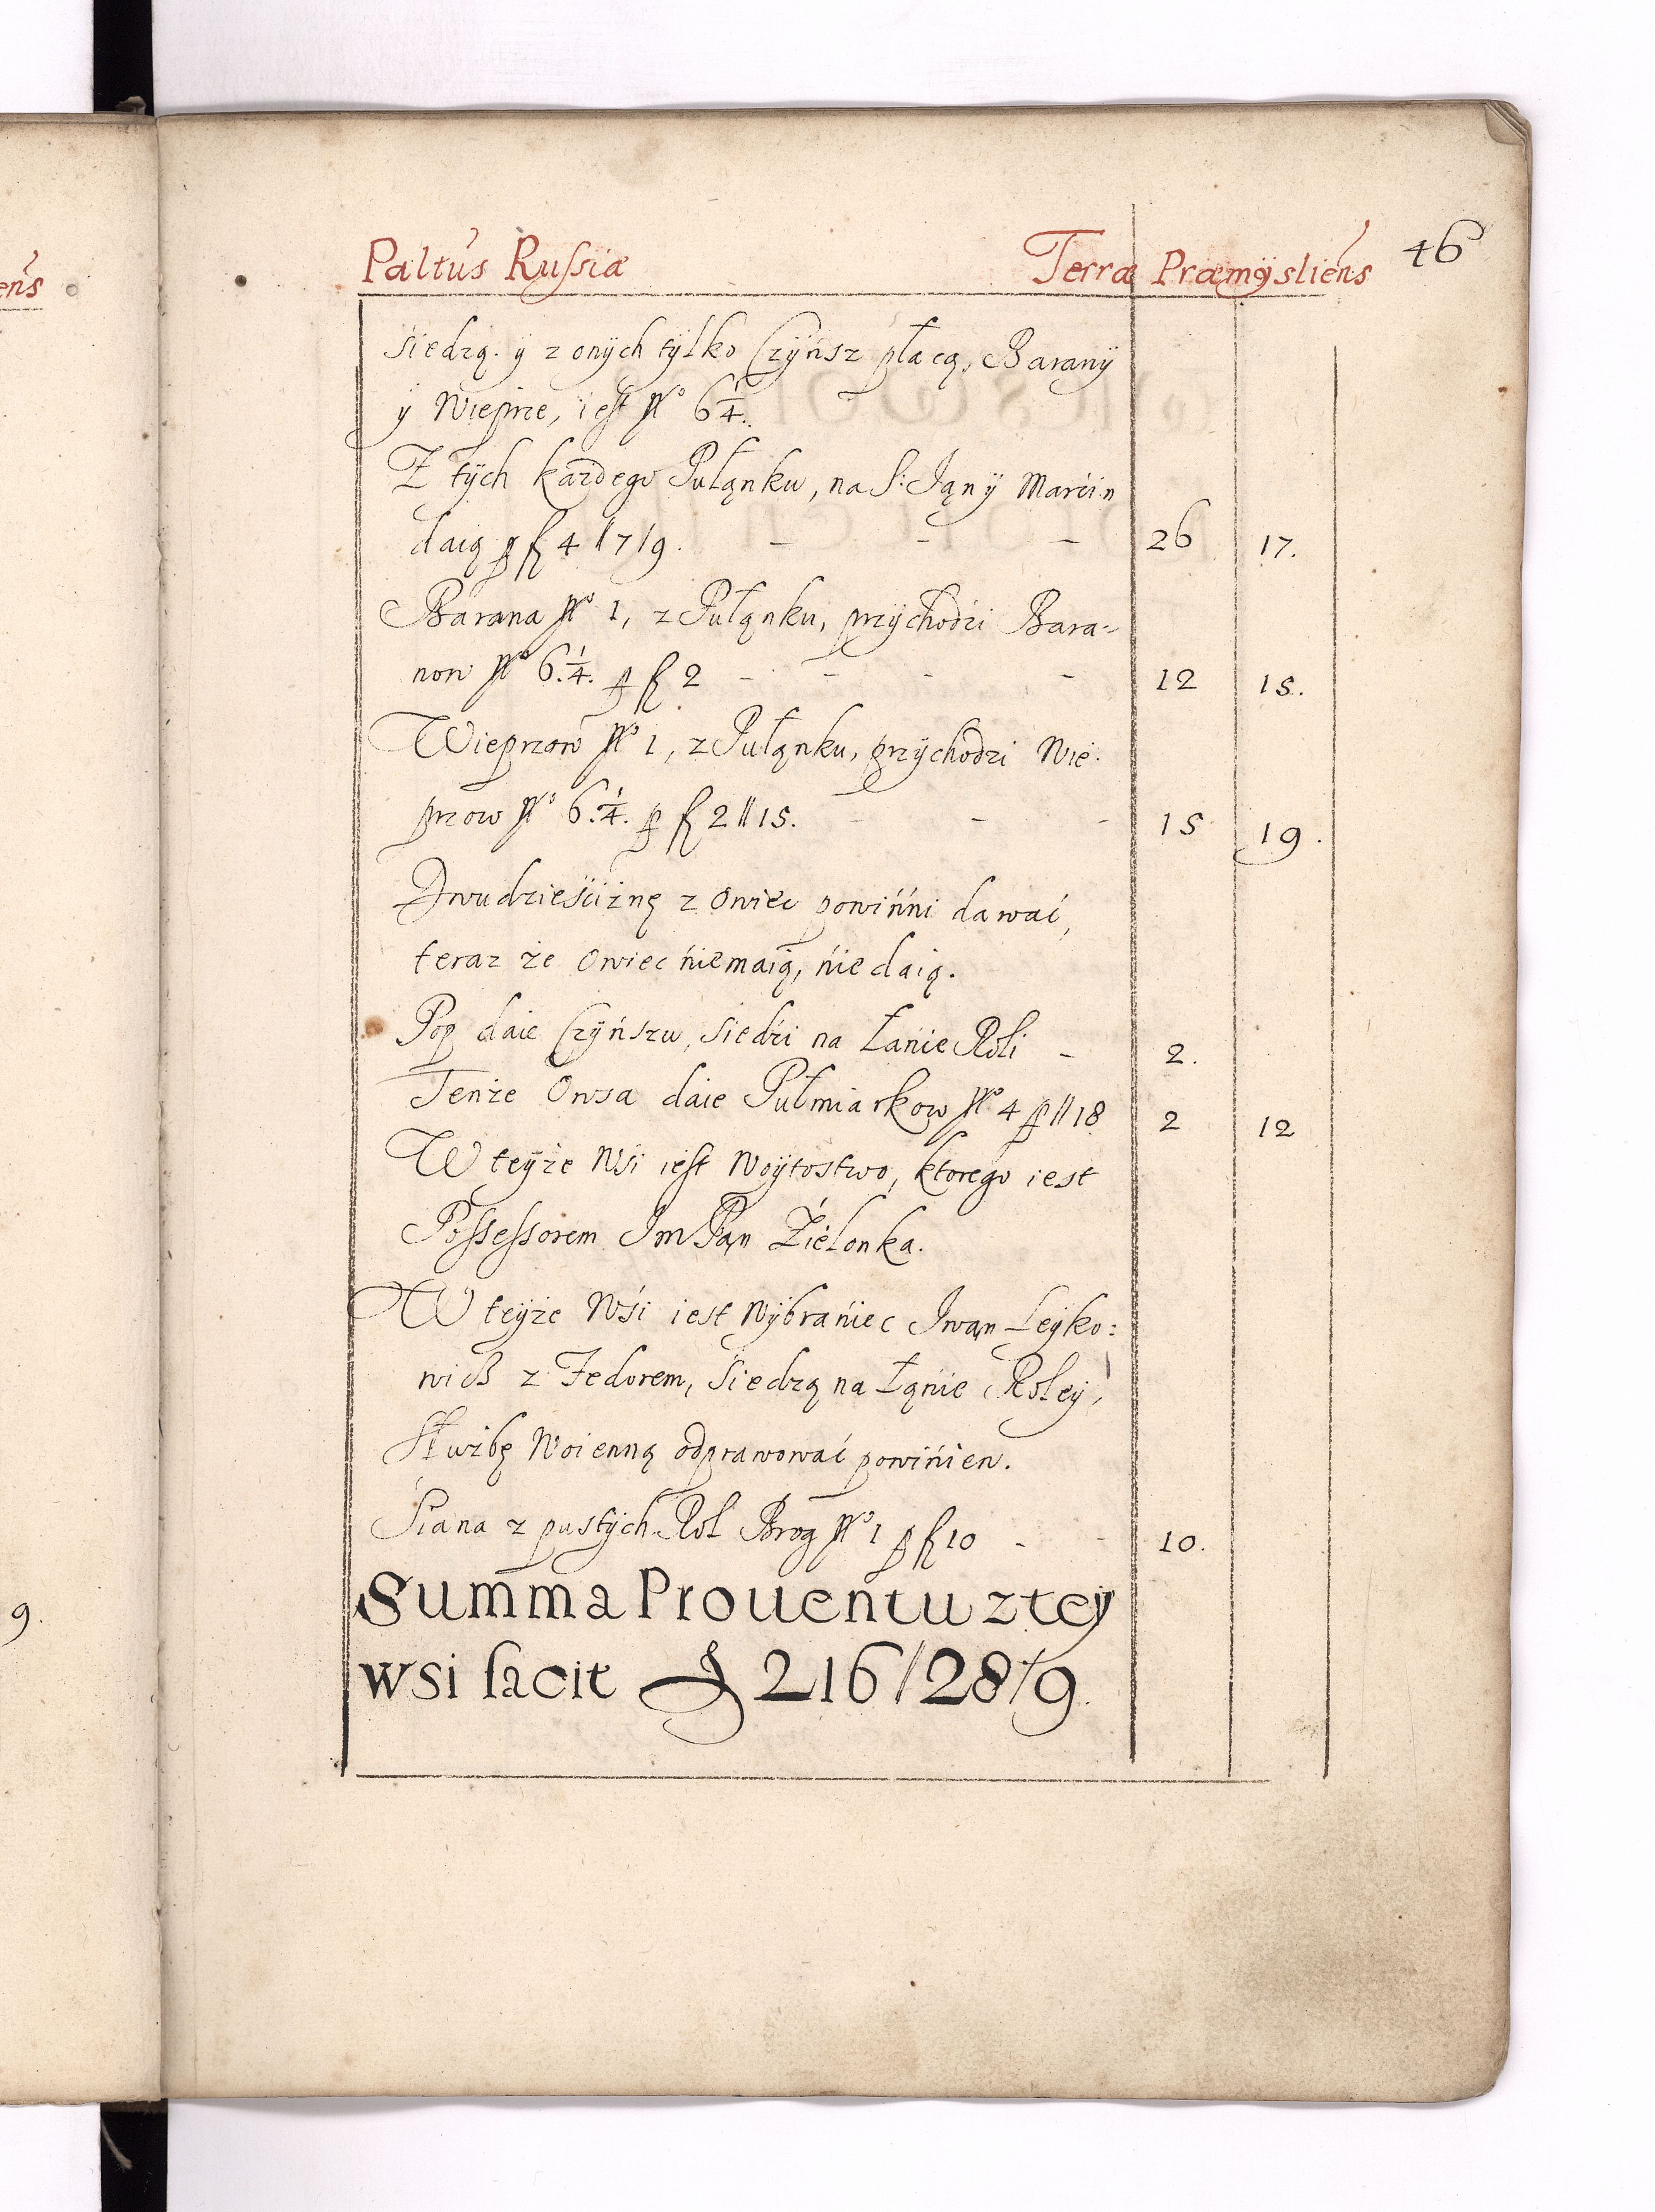 Paltus Russiæ Terræ Præmysliens 46
siedzą. ÿ z onÿch tÿlko Czÿńsz płacą, Baranÿ
ÿ Wieprze, iest No 6 1/4.
Z tÿch każdego Pułanku, na S: Jąnÿ Marćin
daią p fl 4 // 7 / 9. - - - 26 17.
Barana No 1, z Pułanku, przÿchodźi Bara=
now No 6. 1/4. p fl 2 - - - - 12 15.
Wieprzow No 1, z Pułanku, przÿchodzi Wie.
przow No 6. 1/4. p fl 2 // 15. - - - 15 19.
Dwudzieśćiżnę z owiec powińńi dawać,
teraz że owiec ńiemaią, ńie daią.
Pop daie Czÿńszu, siedźi na Łańie Roli - 2.
Tenże Owsa daie Pułmiarkow No 4 p // 18 2 12
W teÿże Wsi iest Woÿtostwo, ktorego iest
Possessorem Im Pąn Źielonka.
W teÿże Wśi iest Wÿbrańiec Iwąn Leÿko:
wicz z Fedorem, śiedzą na Łąnie Roleÿ,
Służbę Woienną odprawować powińien.
Śiana z pustÿch Rol Brog No 1 p fl 10 - - 10.
Summa Prouentu z teÿ
wsi facit fl 216 / 28 / 9.
ens
9.